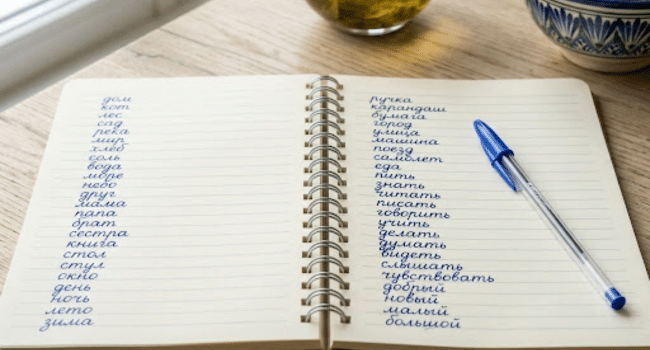 дом
кот
лес
сад
река
мир
хлеб
соль
вода
море
небо
друг
мама
папа
брат
сестра
книга
стол
стул
окно
день
ночь
лето
зима
ручка
карандаш
бумага
город
улица
машина
поезд
самолет
еда
пить
знать
читать
писать
говорить
учить
делать
думать
видеть
слышать
чувствовать
добрый
новый
малый
большой